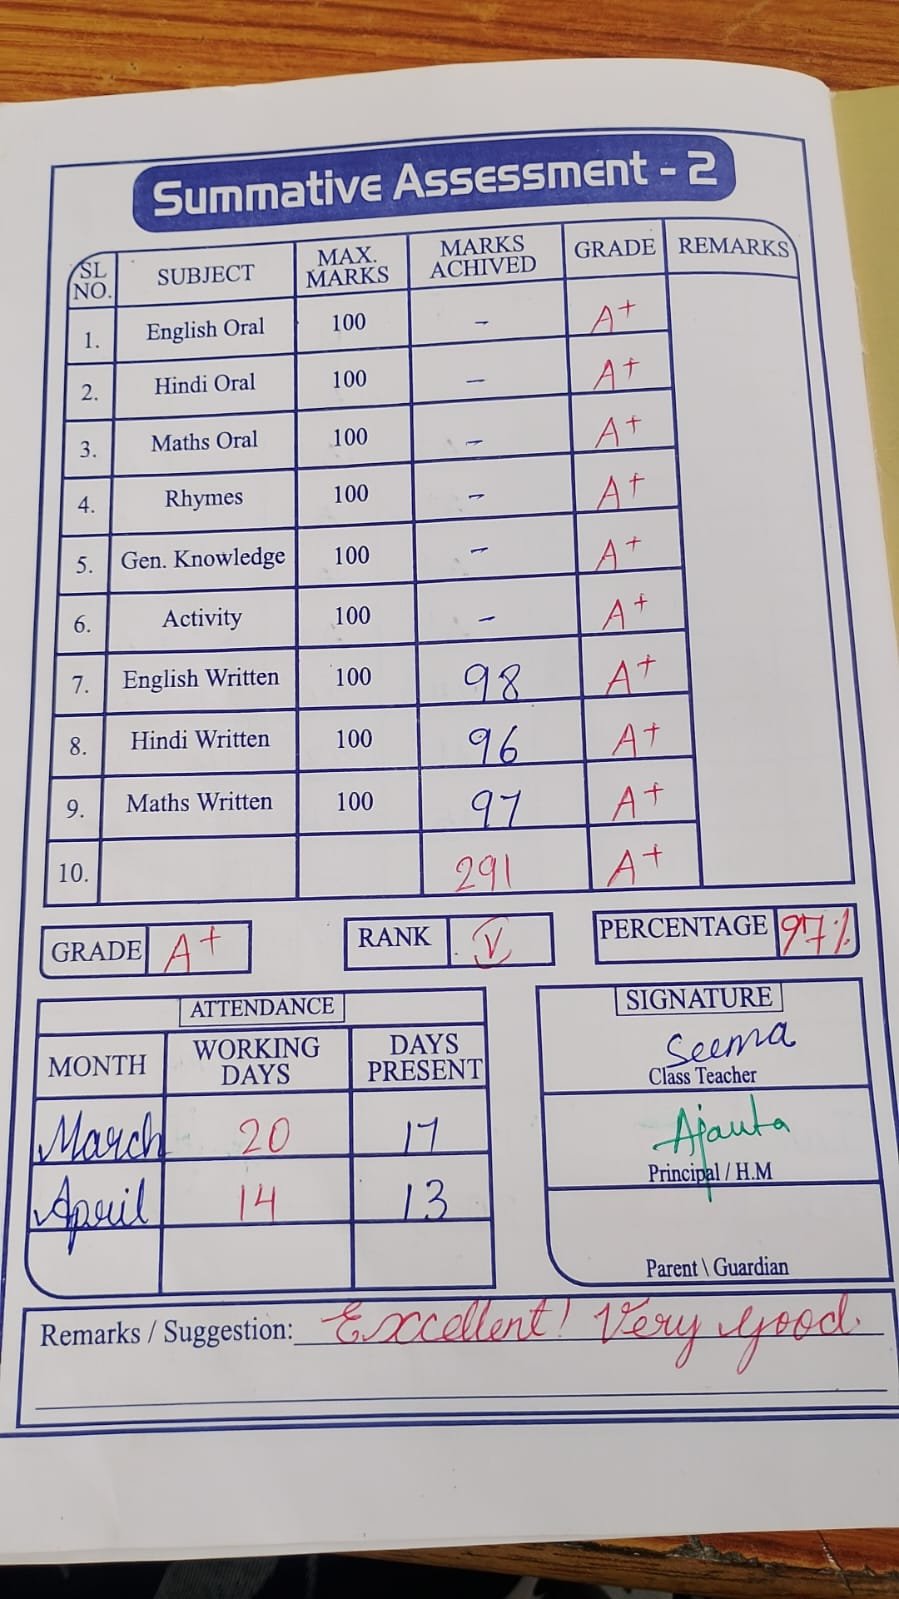 Summative Assessment - 2
SL NO. SUBJECT MAX. MARKS MARKS ACHIVED GRADE REMARKS
1. English Oral 100 - A+
2. Hindi Oral 100 - A+
3. Maths Oral 100 - A+
4. Rhymes 100 - A+
5. Gen. Knowledge 100 - A+
6. Activity 100 - A+
7. English Written 100 98 A+
8. Hindi Written 100 96 A+
9. Maths Written 100 97 A+
10. 291 A+
GRADE A+ RANK V PERCENTAGE 97%
ATTENDANCE
MONTH WORKING DAYS DAYS PRESENT
March 20 17
April 14 13
SIGNATURE
Seema
Class Teacher
Ajanta
Principal / H.M
Parent \ Guardian
Remarks / Suggestion: Excellent! Very good